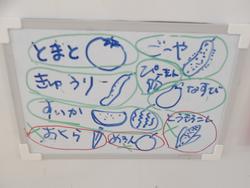 とまと
きゅうり
すいか
おくら
めろん
ごーや
ぴーまん
なすび
とうもろこし